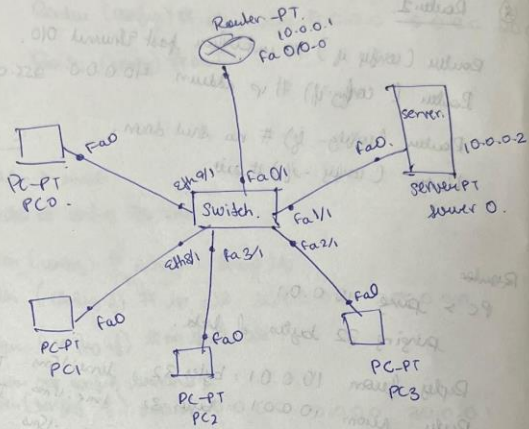 Router-PT
10.0.0.1
fa0/0-0
server.
10.0.0.2
fa0.
serverPT
Fa0
PC-PT
PC0.
Eth9/1
fa0/1
Switch.
fa1/1
Eth8/1
fa3/1
fa2/1
fa0
PC-PT
PC1
fa0
PC-PT
PC2
fa0
PC-PT
PC3